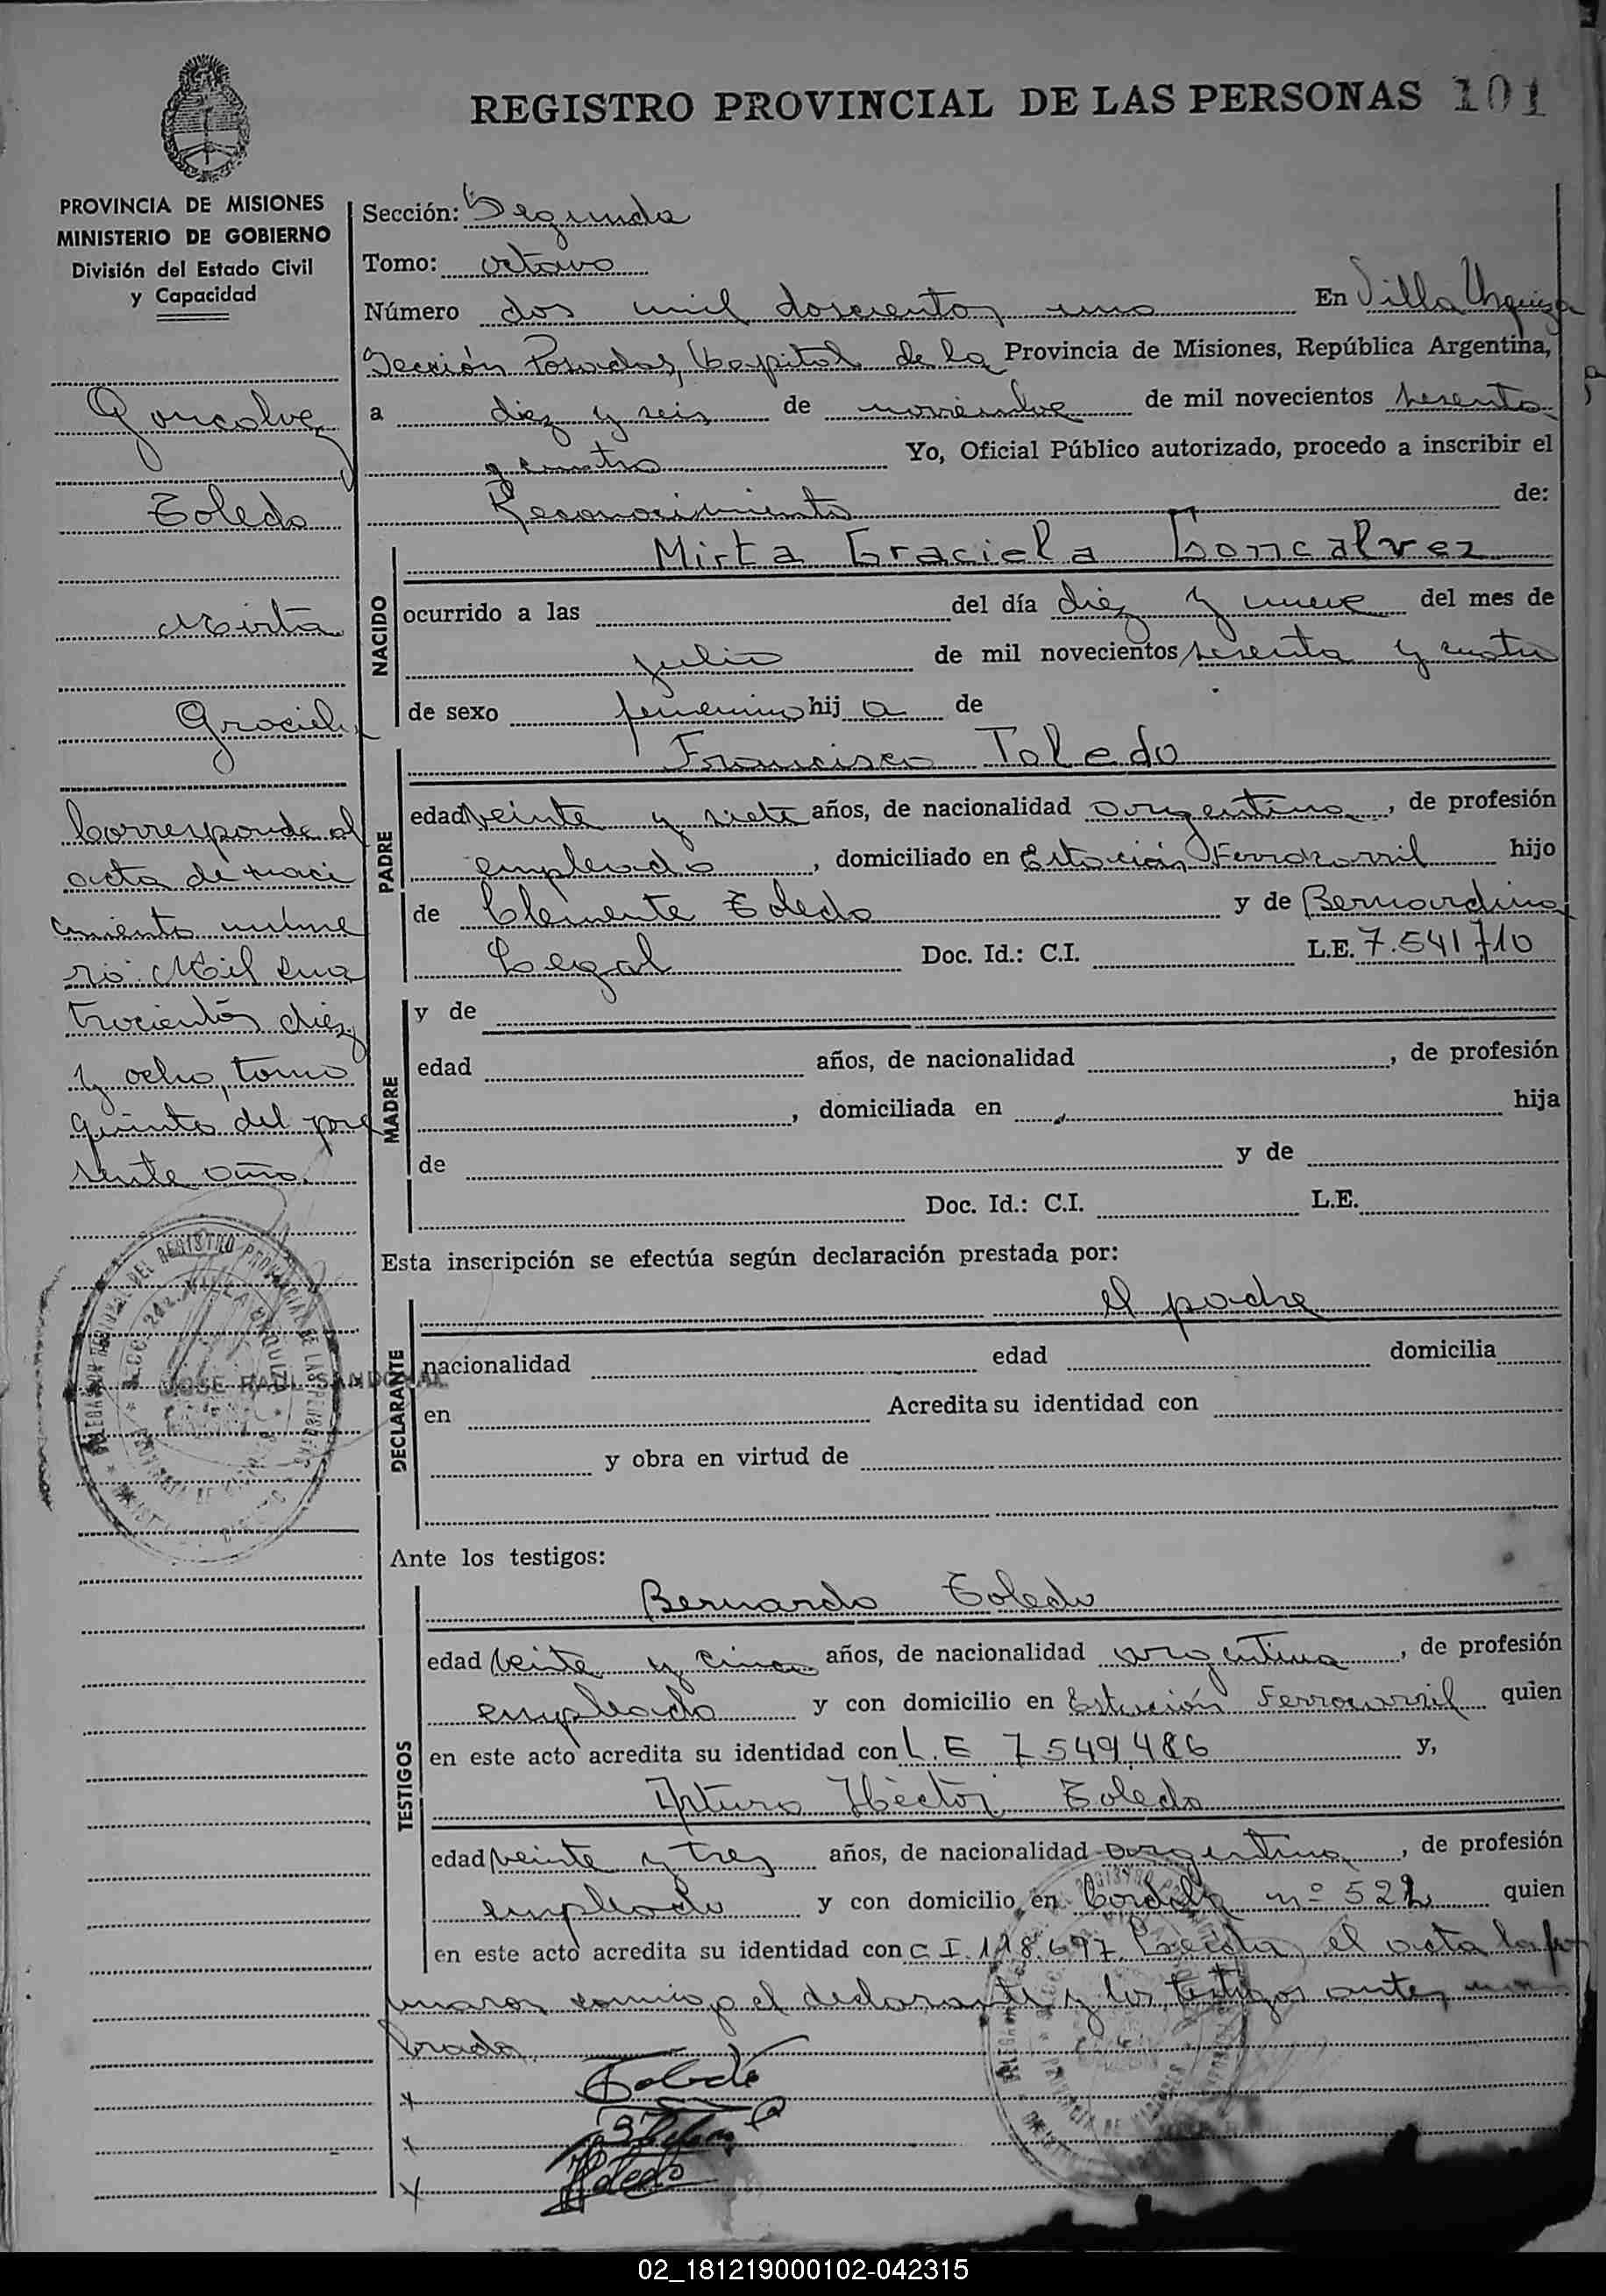 REGISTRO PROVINCIAL DE LAS PERSONAS 101
PROVINCIA DE MISIONES
MINISTERIO DE GOBIERNO
División del Estado Civil
y Capacidad
Goncalvez
Toledo
Mirta
Graciela
Corresponde al
acta de naci
miento núme
ro Mil cua
trocientos diez
y ocho, tomo
quinto del pre
sente año.
JOSE RAUL SANDOVAL
Sección: Segunda
Tomo: octavo
Número dos mil doscientos uno En Villa Urquiza
Sección Posadas, Capital de la Provincia de Misiones, República Argentina,
a diez y seis de noviembre de mil novecientos sesenta
y cuatro Yo, Oficial Público autorizado, procedo a inscribir el
Reconocimiento de:
NACIDO
Mirta Graciela Goncalvez
ocurrido a las del día diez y nueve del mes de
julio de mil novecientos sesenta y cuatro
de sexo femenino hij a de
PADRE
Francisco Toledo
edad veinte y siete años, de nacionalidad argentina, de profesión
empleado, domiciliado en Estación Ferrocarril hijo
de Clemente Toledo y de Bernardina
Legal Doc. Id.: C.I. L.E. 7.541.710
MADRE
y de
edad años, de nacionalidad , de profesión
, domiciliada en hija
de y de
Doc. Id.: C.I. L.E.
Esta inscripción se efectúa según declaración prestada por:
DECLARANTE
el padre
nacionalidad edad domicilia
en Acredita su identidad con
y obra en virtud de
Ante los testigos:
TESTIGOS
Bernardo Toledo
edad veinte y cinco años, de nacionalidad argentina, de profesión
empleado y con domicilio en Estación Ferrocarril quien
en este acto acredita su identidad con L.E 7549.486 y,
Arturo Héctor Toledo
edad veinte y tres años, de nacionalidad argentina, de profesión
empleado y con domicilio en Cordoba nº 522 quien
en este acto acredita su identidad con C I. 118.697. Leída el acta la fir
maron conmigo el declarante y los testigos antes nom
brados.
x Toledo
x
x Toledo
02_181219000102-042315